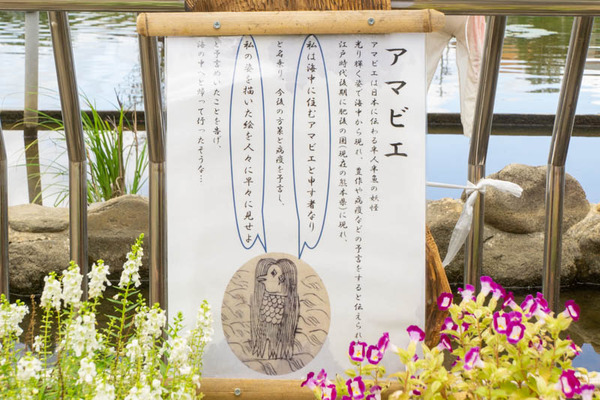 アマビエ
アマビエは日本に伝わる半人半魚の妖怪
光り輝く姿で海中から現れ、豊作や疫病などの予言をすると伝えられ
江戸時代後期に肥後の国(現在の熊本県)に現れ、
私は海中に住むアマビエと申す者なり
と名乗り、今後の方策と疫病を予言し、
私の姿を描いた絵を人々に早々に見せよ
と予言めいたことを告げ、
海の中へと帰って行ったそうな…